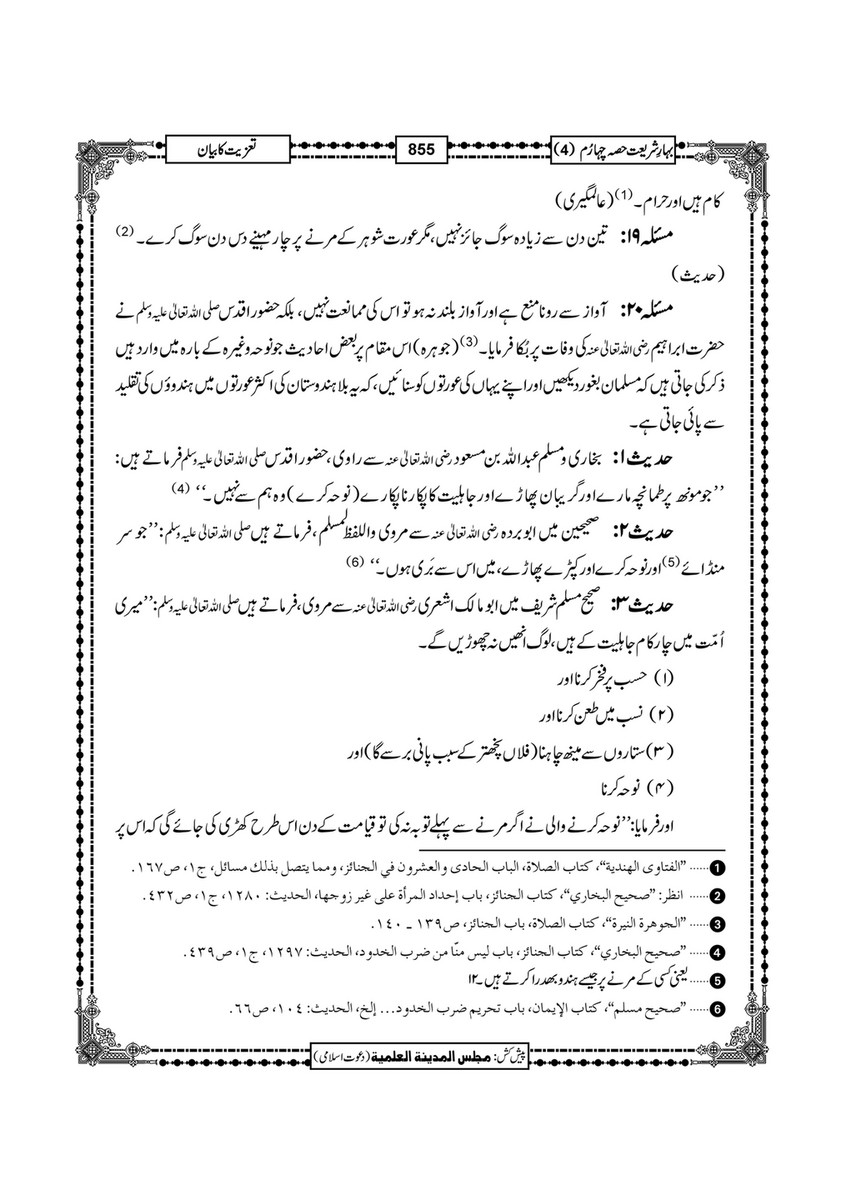 بہارِ شریعت حصہ چہارُم (4)
855
تعزیت کا بیان
کام ہیں اور حرام۔(1) (عالمگیری)
مسئلہ ۱۹: تین دن سے زیادہ سوگ جائز نہیں، مگر عورت شوہر کے مرنے پر چار مہینے دس دن سوگ کرے۔(2)
(حدیث)
مسئلہ ۲۰: آواز سے رونا منع ہے اور آواز بلند نہ ہو تو اس کی ممانعت نہیں، بلکہ حضور اقدس صلی اللہ تعالیٰ علیہ وسلم نے
حضرت ابراہیم رضی اللہ تعالیٰ عنہ کی وفات پر بُکا فرمایا۔(3) (جوہرہ) اس مقام پر بعض احادیث جو نوحہ وغیرہ کے بارہ میں وارد ہیں
ذکر کی جاتی ہیں کہ مسلمان بغور دیکھیں اور اپنے یہاں کی عورتوں کو سنائیں، کہ یہ بلا ہندوستان کی اکثر عورتوں میں ہندوؤں کی تقلید
سے پائی جاتی ہے۔
حدیث ۱: بخاری و مسلم عبداللہ بن مسعود رضی اللہ تعالیٰ عنہ سے راوی، حضور اقدس صلی اللہ تعالیٰ علیہ وسلم فرماتے ہیں:
’’جو مونھ پر طمانچہ مارے اور گریبان پھاڑے اور جاہلیت کا پکارنا پکارے (نوحہ کرے) وہ ہم سے نہیں۔‘‘ (4)
حدیث ۲: صحیحین میں ابو بردہ رضی اللہ تعالیٰ عنہ سے مروی واللفظ لمسلم، فرماتے ہیں صلی اللہ تعالیٰ علیہ وسلم: ’’جو سر
منڈائے(5) اور نوحہ کرے اور کپڑے پھاڑے، میں اس سے بَری ہوں۔‘‘ (6)
حدیث ۳: صحیح مسلم شریف میں ابو مالک اشعری رضی اللہ تعالیٰ عنہ سے مروی، فرماتے ہیں صلی اللہ تعالیٰ علیہ وسلم: ’’میری
اُمّت میں چار کام جاہلیت کے ہیں، لوگ انھیں نہ چھوڑیں گے۔
(۱) حسب پر فخر کرنا اور
(۲) نسب میں طعن کرنا اور
(۳) ستاروں سے مینھ چاہنا (فلاں پخھتر کے سبب پانی برسے گا) اور
(۴) نوحہ کرنا
اور فرمایا: ’’نوحہ کرنے والی نے اگر مرنے سے پہلے توبہ نہ کی تو قیامت کے دن اس طرح کھڑی کی جائے گی کہ اس پر
1 ...... ”الفتاوى الهندية“، كتاب الصلاة، الباب الحادى والعشرون في الجنائز، ومما يتصل بذلك مسائل، ج١، ص١٦٧.
2 ...... انظر: ”صحيح البخاري“، كتاب الجنائز، باب إحداد المرأة على غير زوجها، الحديث: ١٢٨٠، ج١، ص٤٣٢.
3 ...... ”الجوهرة النيرة“، كتاب الصلاة، باب الجنائز، ص١٣٩ ـ ١٤٠.
4 ...... ”صحيح البخاري“، كتاب الجنائز، باب ليس منّا من ضرب الخدود، الحديث: ١٢٩٧، ج١، ص٤٣٩.
5 ...... یعنی کسی کے مرنے پر جیسے ہندو بھدرا کرتے ہیں۔۱۲
6 ...... ”صحيح مسلم“، كتاب الإيمان، باب تحريم ضرب الخدود... إلخ، الحديث: ١٠٤، ص٦٦.
پیش کش: مجلس المدينة العلمية (دعوت اسلامی)